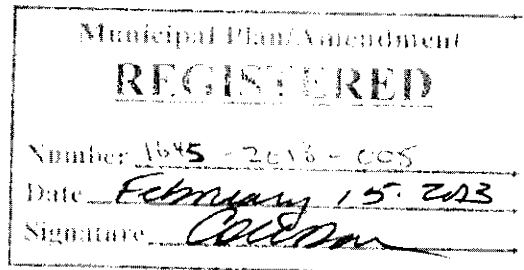 Municipal Plan/Amendment
REGISTERED
Number 1645 - 2013 - 005
Date February 15. 2013
Signature